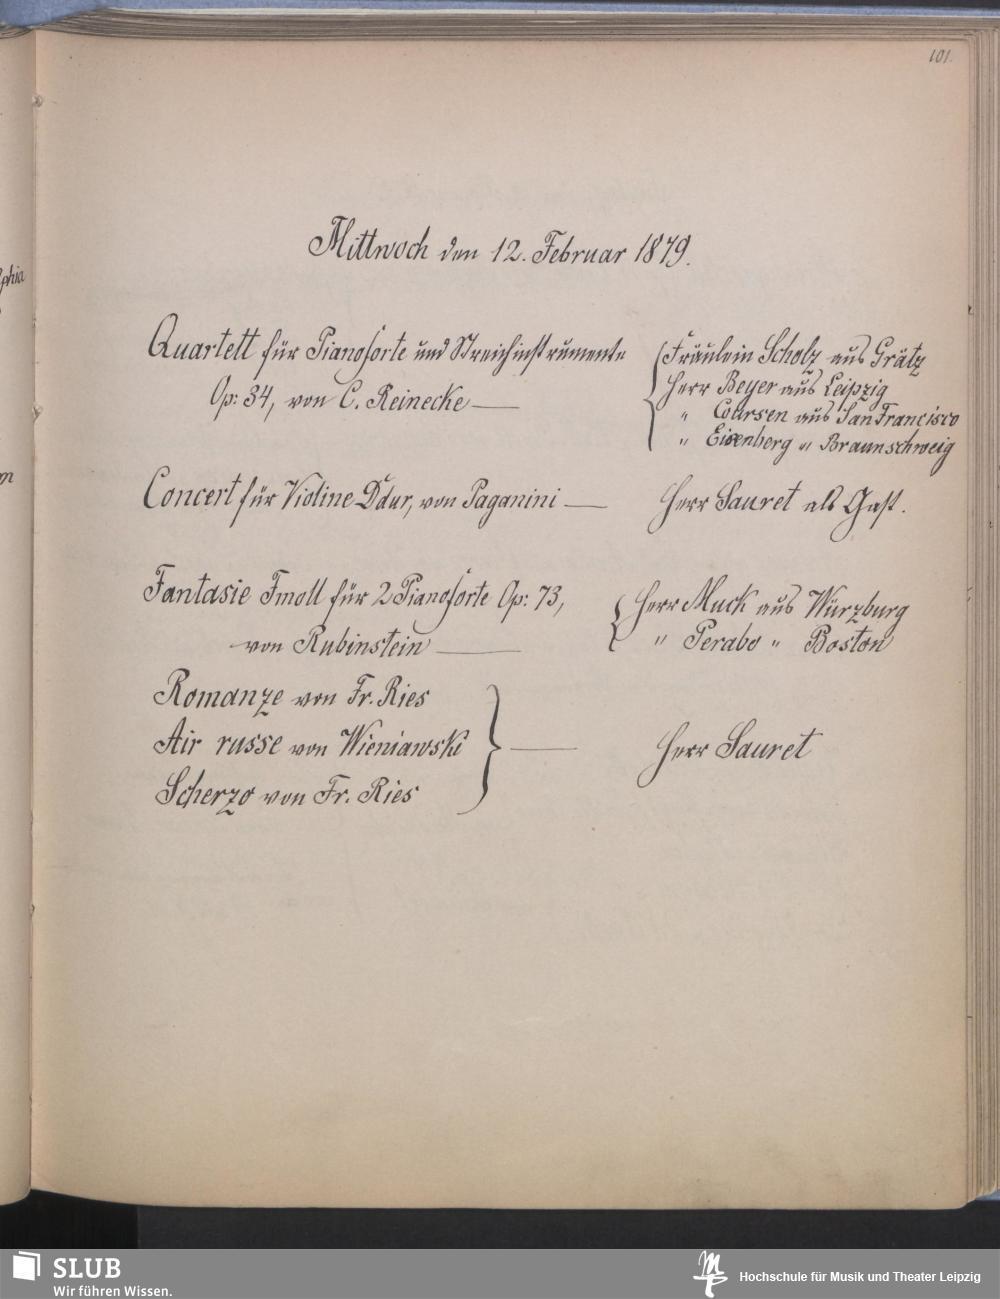 101.
Mittwoch den 12. Februar 1879.
Quartett für Pianoforte und Streichinstrumente
Op: 34, von C. Reinecke —
Fräulein Scholz aus Grätz
Herr Beyer aus Leipzig
" Coursen aus San Francisco
" Eisenberg " Braunschweig
Concert für Violine Ddur, von Paganini — Herr Sauret als Gast.
Fantasie Fmoll für 2 Pianoforte Op: 73,
von Rubinstein —
Herr Muck aus Würzburg
" Perabo " Boston
Romanze von Fr. Ries
Air russe von Wieniawski — Herr Sauret
Scherzo von Fr. Ries
phia
m
SLUB
Wir führen Wissen.
Hochschule für Musik und Theater Leipzig